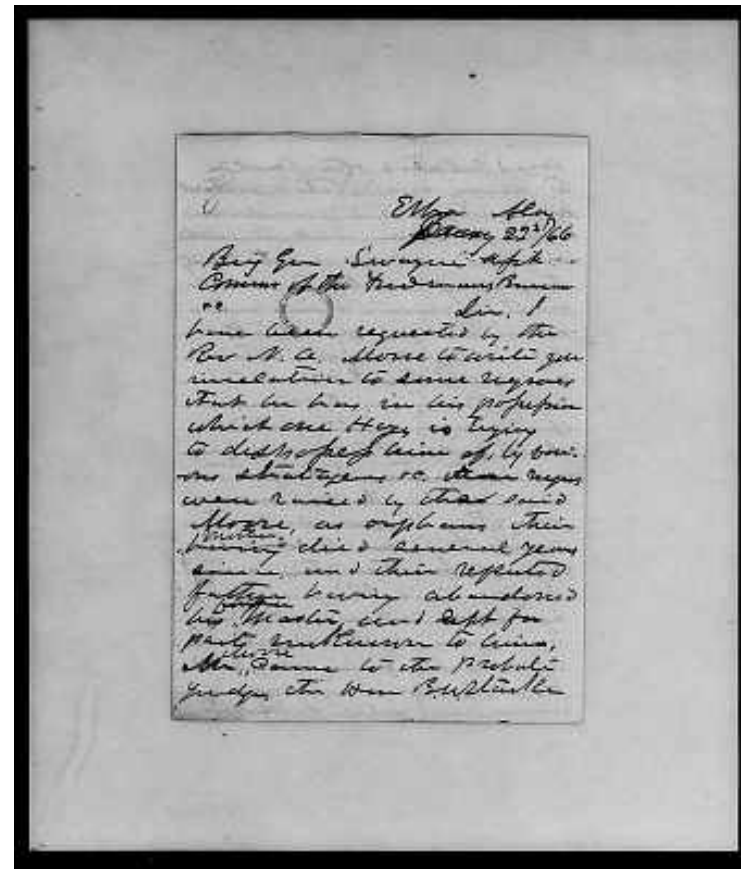 Elba Ala
22d/66
Brig Gen Swayne Asst
Commr of the Freedmans Bureau
Sir. I
have been requested by the
Rev N. A. Moore to write you
in relation to some negroes
that he has in his possession
which one Hays is trying
to dispossess him of, by vari-
ous stratagems &c. these negroes
were raised by said
Moore, as orphans their
mother
having died several years
since, and their reputed
father having abandoned
his master and left for
parts unknown to him,
Mr. Moore came to the Probate
Judge, the Hon